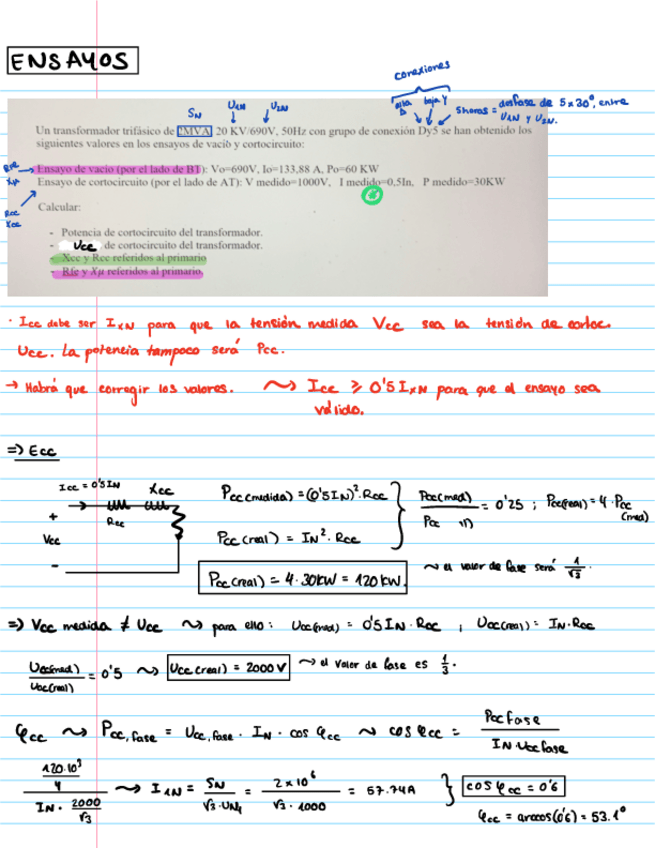 ENSAYOS
conexiones
SN U1N U2N
alta baja Y
Δ
5horas = desfase de 5x30°, entre
U1N y U2N.
Un transformador trifásico de 2MVA, 20 KV/690V, 50Hz con grupo de conexión Dy5 se han obtenido los
siguientes valores en los ensayos de vacío y cortocircuito:
RFe
Xμ
Ensayo de vacio (por el lado de BT): Vo=690V, Io=133,88 A, Po=60 KW
Ensayo de cortocircuito (por el lado de AT): V medido=1000V, I medido=0,5In, P medido=30KW
Rcc
Xcc
Calcular:
- Potencia de cortocircuito del transformador.
- Ucc de cortocircuito del transformador.
- Xcc y Rcc referidos al primario
- Rfe y Xμ referidos al primario.
· Icc debe ser I1N para que la tensión medida Vcc sea la tensión de cortoc.
Ucc. La potencia tampoco será Pcc.
→ Habrá que corregir los valores. ⤳ Icc ⩾ 0'5 I1N para que el ensayo sea
válido.
=> Ecc
Icc = 0'5 IN Xcc
Rcc
+
Vcc
-
Pcc(medida) = (0'5IN)². Rcc
Pcc(real) = IN². Rcc
Pcc(med)/Pcc(r) = 0'25 ; Pcc(real) = 4. Pcc(med)
Pcc(real) = 4.30KW = 120KW.
~ el valor de fase será 1/√3.
=> Vcc medida ≠ Ucc ⤳ para ello: Ucc(med) = 0'5 IN. Rcc ; Ucc(real) = IN. Rcc
Ucc(med)/Ucc(real) = 0'5 ⤳ Ucc(real) = 2000V ⤳ el valor de fase es 1/3.
φcc ⤳ Pcc,fase = Ucc,fase . IN . cos φcc ~ cos φcc = Pcc fase/IN.Ucc fase
120.10³/4 / IN . 2000/√3 ⤳ I1N = SN/√3.UN1 = 2x10⁶/√3.1000 = 57.74A } cos φcc = 0'6
φcc = arccos(0'6) = 53.1°